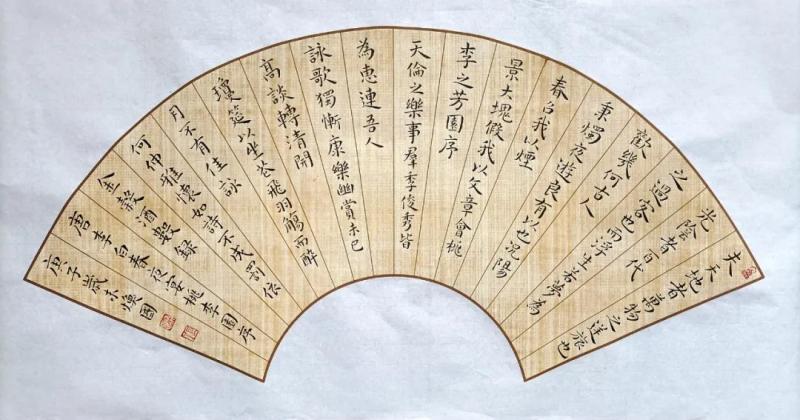 夫天地者萬物之逆旅也
光陰者百代
之過客也而浮生若夢為
歡幾何古人
秉燭夜遊良有以也況陽
春召我以煙
景大塊假我以文章會桃
李之芳園序
天倫之樂事羣季俊秀皆
為惠連吾人
詠歌獨慚康樂幽賞未已
高談轉清開
瓊筵以坐花飛羽觴而醉
月不有佳詠
何伸雅懷如詩不成罰依
金穀酒數 錄
唐李白春夜宴桃李園序
庚子歲末煥國